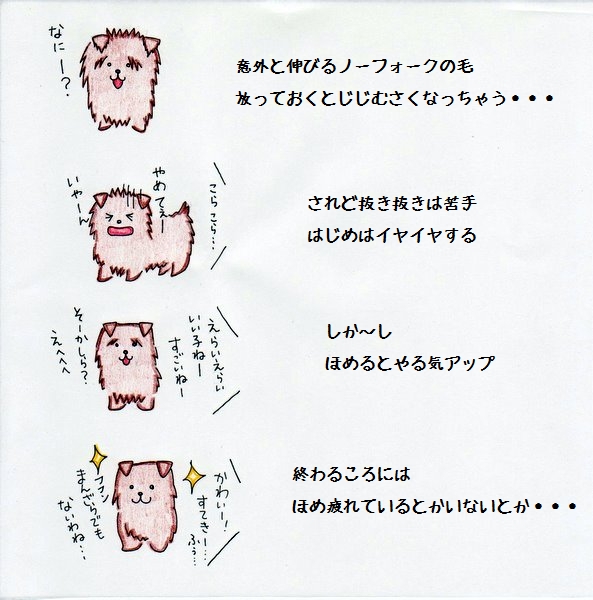 なにー？
意外と伸びるノーフォークの毛
放っておくとじじむさくなっちゃう・・・
こらこら…
やめてぇー
いやーん
されど抜き抜きは苦手
はじめはイヤイヤする
えらいえらい
いい子ねー
すごいねー
そーかしら？
えへへへ
しか～し
ほめるとやる気アップ
かわいー！
すてきー…
ふぅ…
フフン
まんざらでも
ないわね…
終わるころには
ほめ疲れているとかいないとか・・・